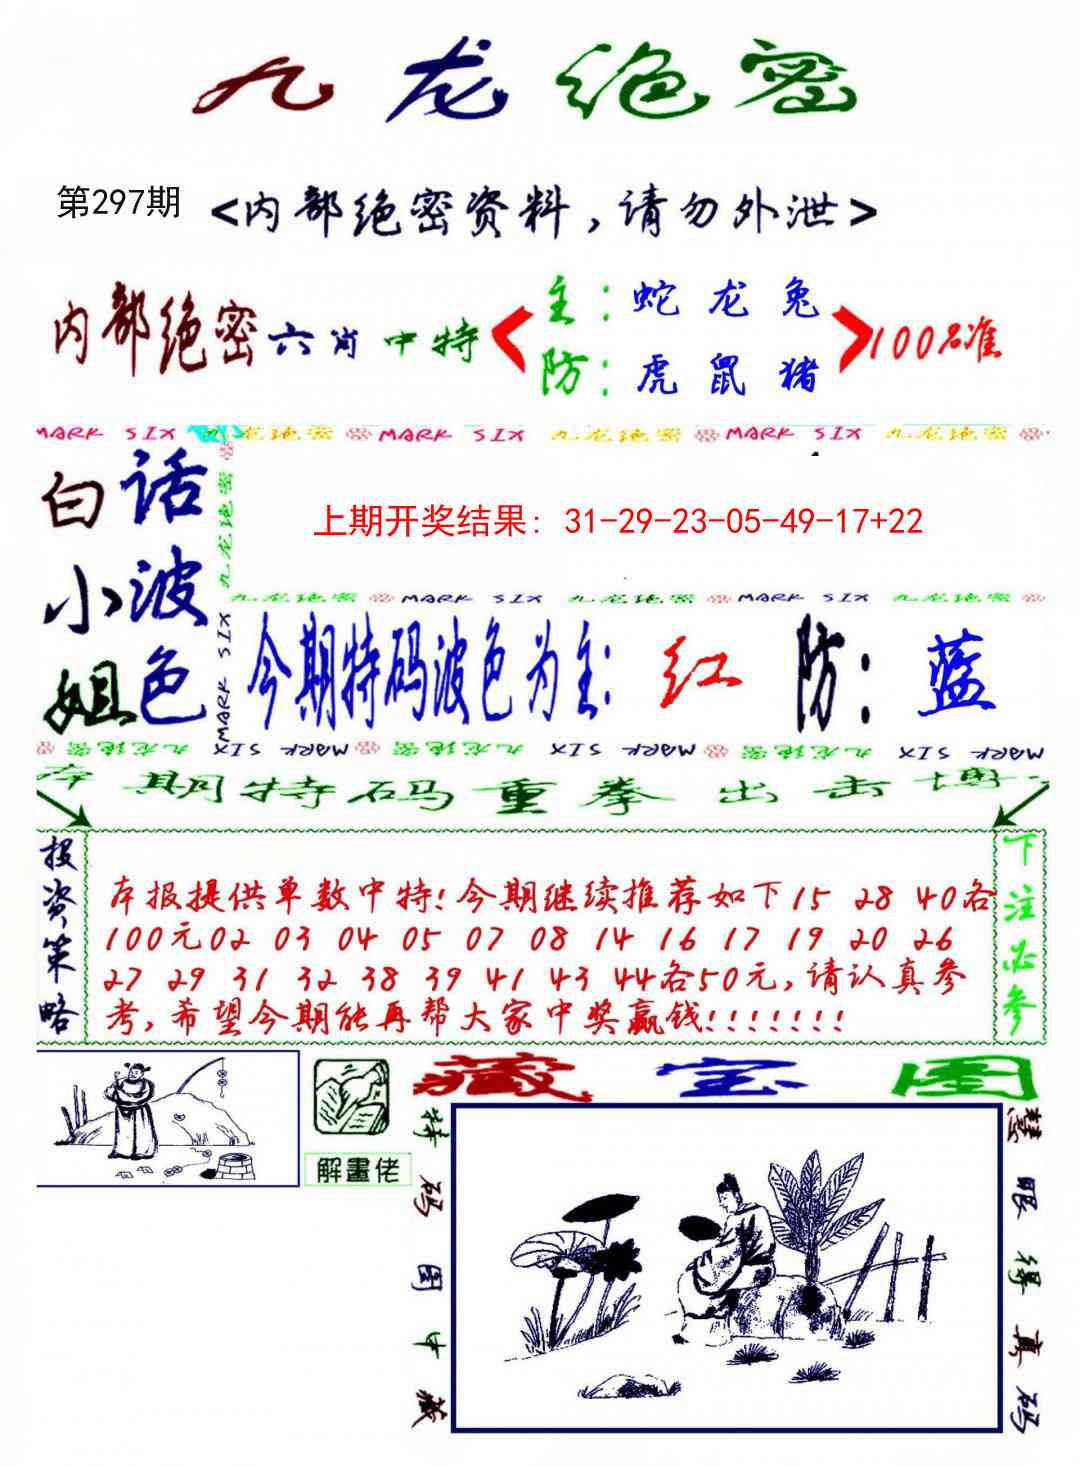 九龙绝密
第297期 <内部绝密资料，请勿外泄>
内部绝密六肖中特
主：蛇 龙 兔
防：虎 鼠 猪
100%准
MARK SIX 九龙绝密 MARK SIX 九龙绝密 MARK SIX 九龙绝密
白话小波姐色
九龙绝密 MARK SIX
上期开奖结果: 31-29-23-05-49-17+22
九龙绝密 MARK SIX 九龙绝密 MARK SIX 九龙绝密
今期特码波色为主: 红 防: 蓝
九龙绝密 MARK SIX 九龙绝密 MARK SIX 九龙绝密 MARK SIX
本期特码重拳出击博
投资策略
本报提供单数中特!今期继续推荐如下15 28 40各
100元02 03 04 05 07 08 14 16 17 19 20 26
27 29 31 32 38 39 41 43 44各50元,请认真参
考,希望今期能再帮大家中奖赢钱!!!!!!!
下注必参
解畫佬
藏宝图
特码图中藏
慧眼得真码